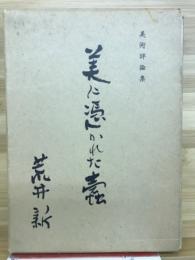 美術評論集
美に憑かれた蠹
荒井新